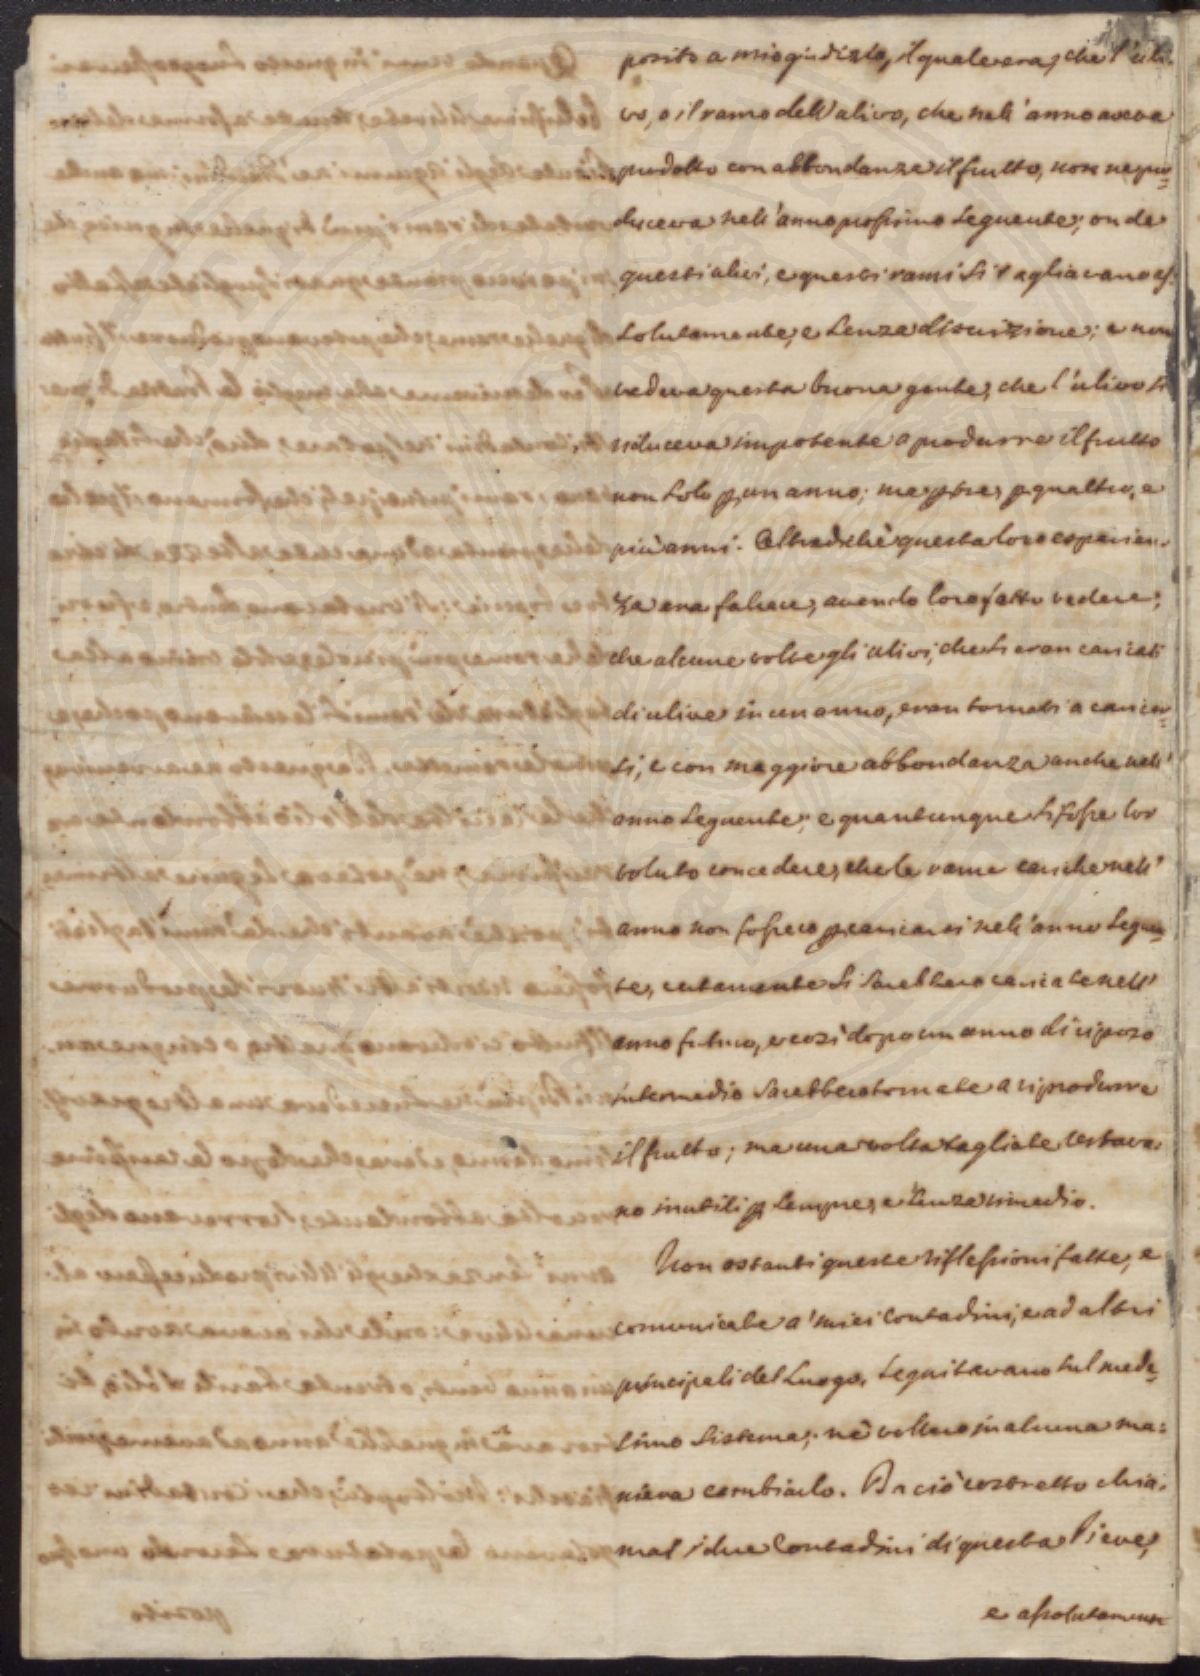 posito a mio giudizio, il quale era, che l'uli-
vo, o il ramo dell'ulivo, che nell'anno aveva
prodotto con abbondanza il frutto, non ne pro=
duceva nell'anno prossimo seguente; onde
questi ulivi, e questi rami si tagliavano as-
solutamente, e senza discrizione; e non
vedeva questa buona gente, che l'ulivo si
riduceva impotente a produrre il frutto
non solo p un anno; ma p tre, p quattro, e
più anni. Oltredichè questa loro esperien-
za era fallace, avendo loro fatto vedere,
che alcune volte gli ulivi, che si eran caricati
di ulive in un anno, eran tornati a caricar=
si, e con maggiore abbondanza anche nell'
anno seguente; e quantunque si fosse lor
voluto concedere, che le rame cariche nell'
anno non fossero p caricarsi nell'anno seguen=
te, certamente si sarebbero caricate nell'
anno futuro, e così dopo un anno di riposo
intermedio sarebbero tornate a riprodurre
il frutto; ma una volta tagliate restava-
no inutili p sempre, e senza rimedio.
Non ostanti queste riflessioni fatte, e
comunicate a' miei Contadini, e ad altri
principali del Luogo, seguitavano sul mede=
simo sistema; nè vollero in alcuna ma=
niera cambiarlo. Da ciò costretto chia-
mai i due Contadini di questa Pieve,
e assolutamente